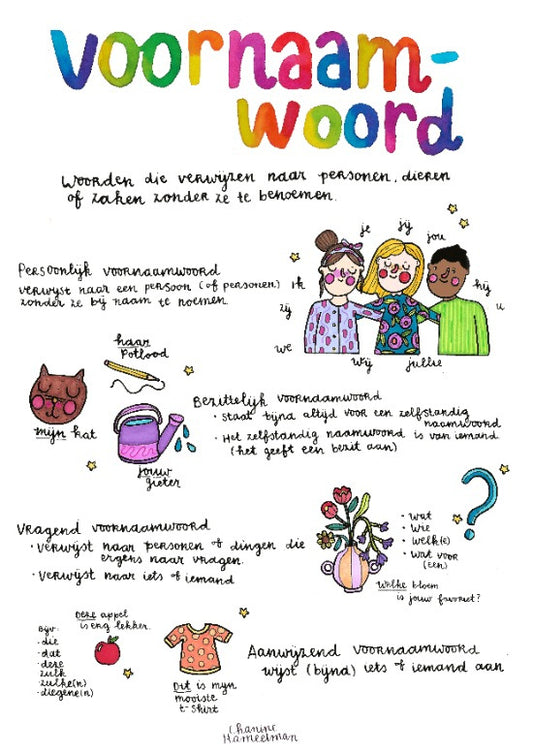 voornaam-
woord
Woorden die verwijzen naar personen, dieren
of zaken zonder ze te benoemen.
je
jij
jou
Persoonlijk voornaamwoord
verwijst naar een persoon (of personen)
zonder ze bij naam te noemen.
ik
hij
zij
u
we
wij
jullie
haar
potlood
mijn kat
jouw
gieter
Bezittelijk voornaamwoord
• staat bijna altijd voor een zelfstandig
naamwoord
• Het zelfstandig naamwoord is van iemand
(het geeft een bezit aan)
Vragend voornaamwoord
• verwijst naar personen of dingen die
ergens naar vragen.
• verwijst naar iets of iemand
• wat
• wie
• welk(e)
• wat voor
(een)
?
Welke bloem
is jouw favoriet?
Deze appel
is erg lekker.
Bijv:
• die
• dat
• deze
• zulk
• zulke(n)
• diegene(n)
Dit is mijn
mooiste
t-shirt
Aanwijzend voornaamwoord
wijst (bijna) iets of iemand aan
Chanine
Hameetman